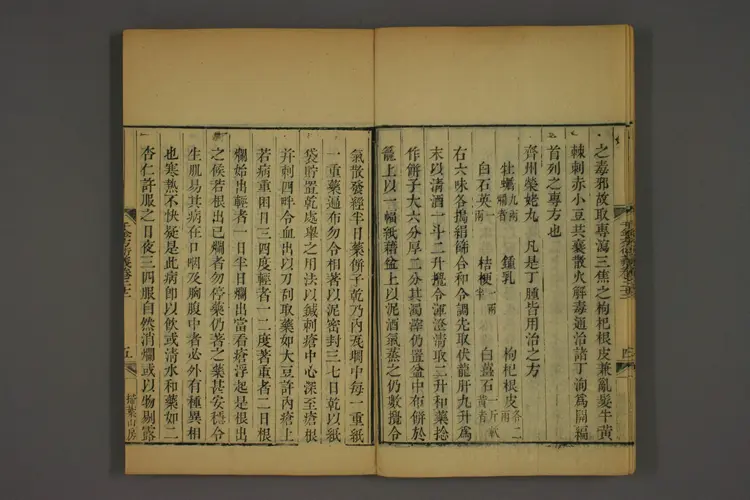 之毒邪故取專瀉三焦之枸杞根皮兼亂髮牛黃
棘刺赤小豆共襄散火解毒通治諸丁洵為開福
首列之專方也
齊州榮姥丸 凡是丁腫皆用治之方
牡蠣九兩爛者 鍾乳 枸杞根皮各二兩
白石英一兩 桔梗一兩半 白薑石一斤軟黃者
右六味各搗絹篩合和令調先取伏龍肝九升為
末以清酒一斗二升攪令渾渾澄清取二升和藥捻
作餅子大六分厚二分其濁滓仍置盆中布餅於
籠上以一幅紙藉盆上以泥酒氣蒸之仍數攪令
氣散發經半日藥餅子乾乃內瓦坩中每一重紙
一重藥遍布勿令相著以泥密封三七日乾以紙
袋貯置乾處舉之用法以鍼刺瘡中心深至瘡根
并刺四畔令血出以刀刮取藥如大豆許內瘡上
若病重困日三四度輕者一二度著重者二日根
爛始出輕者一日半日爛出當看瘡浮起是根出
之候若根出已爛者勿停藥仍著之藥甚安穩令
生肌易其病在口咽及胸腹中者必外有種異相
也寒熱不快疑是此病即以飲或清水和藥如二
杏仁許服之日夜三四服自然消爛或以物剔露
五
掃葉山房